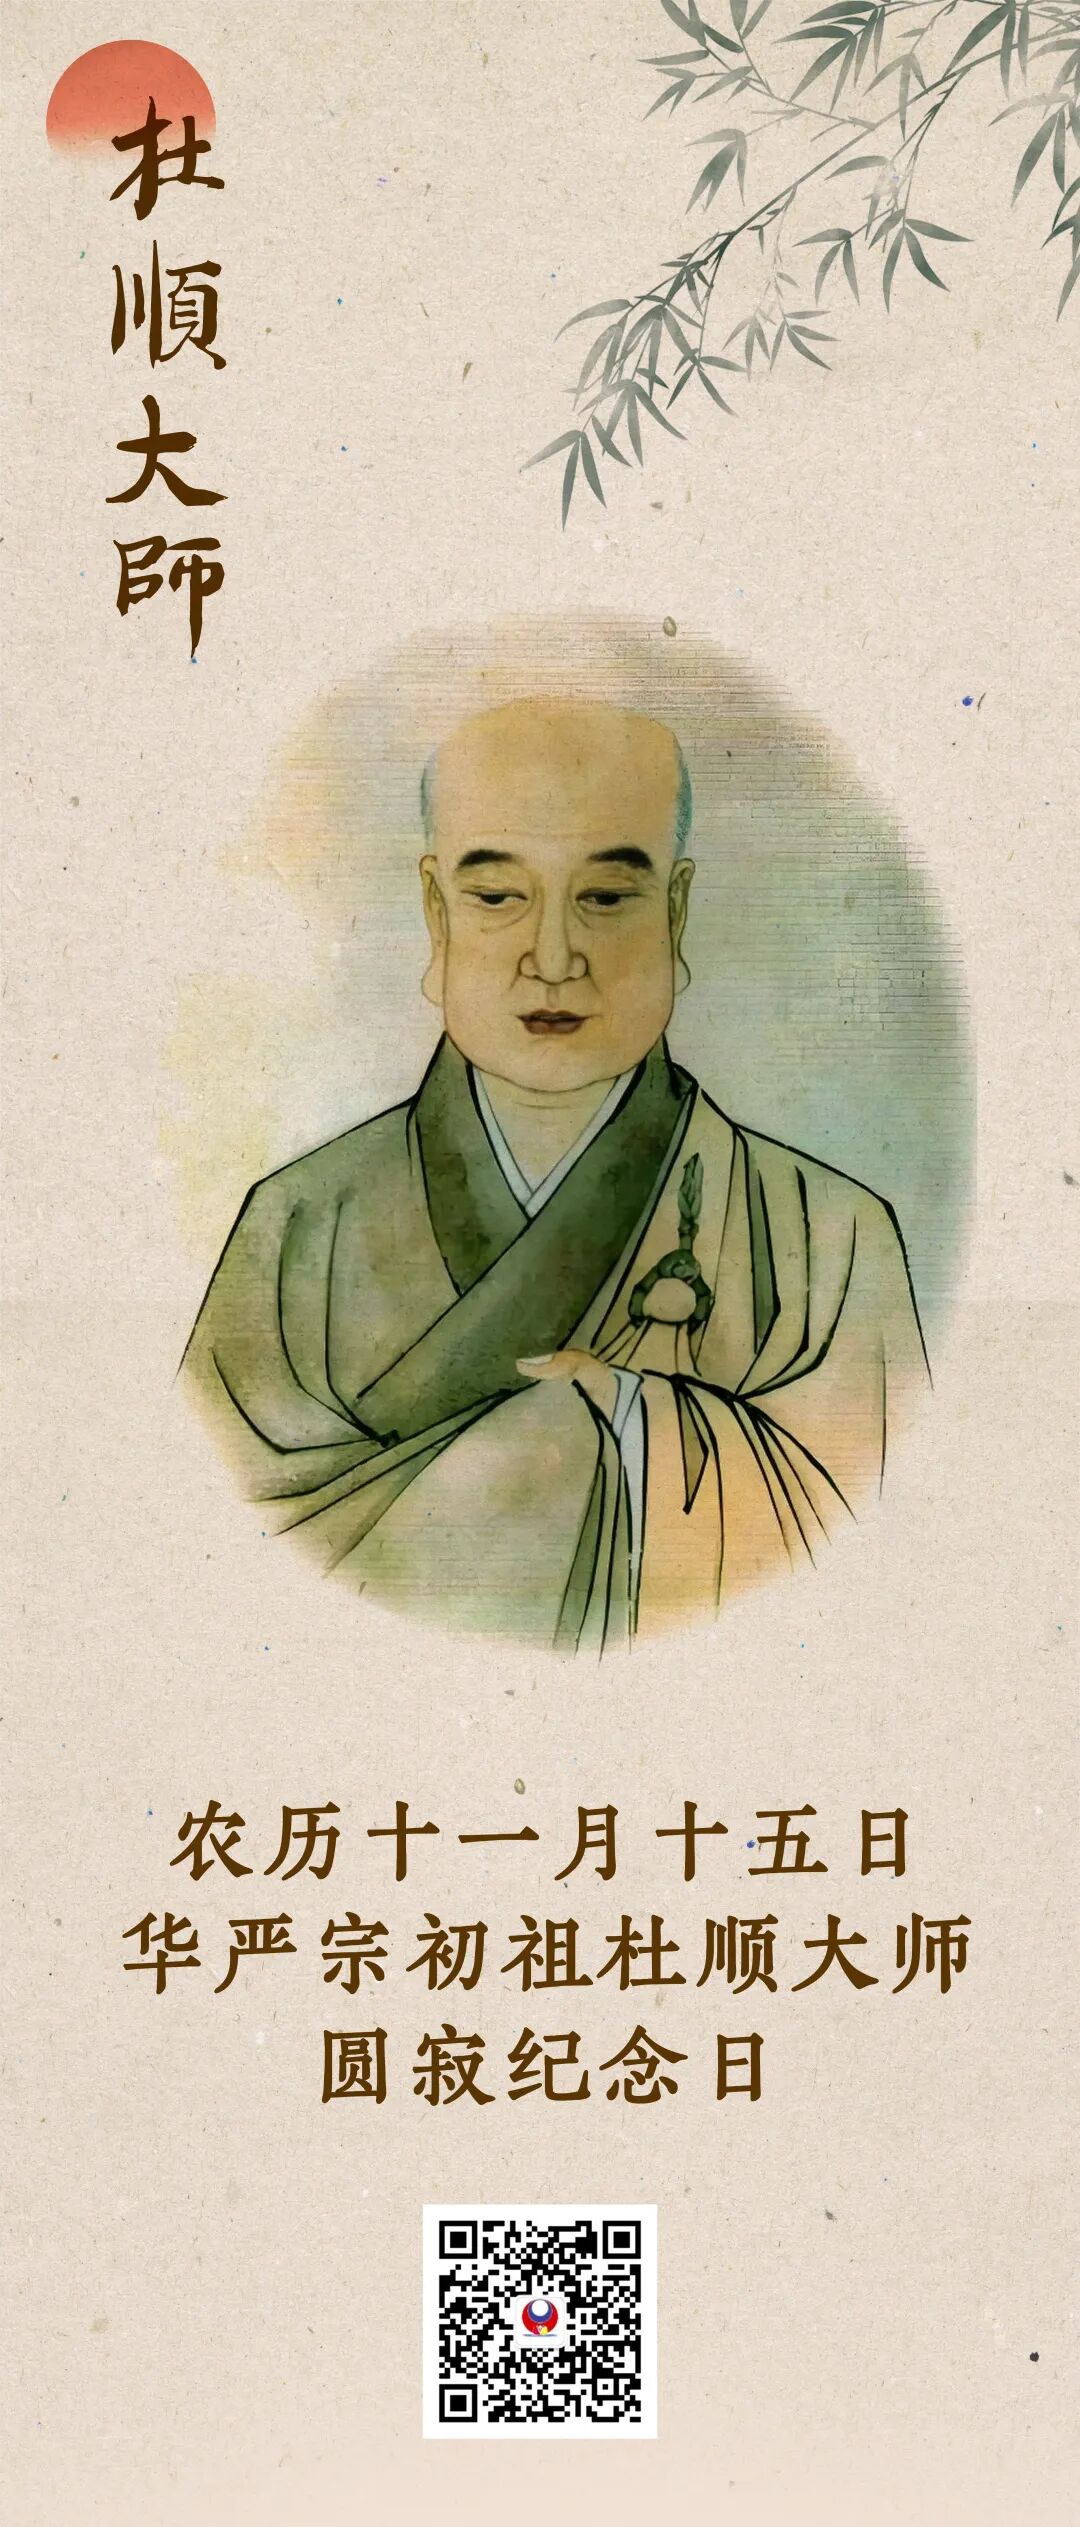 杜順大師
农历十一月十五日
华严宗初祖杜顺大师
圆寂纪念日